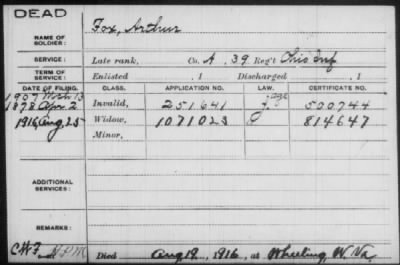 DEAD
NAME OF SOLDIER: Fox, Arthur
SERVICE: Late rank, Co. A, 39 Reg't Ohio Inf
TERM OF SERVICE: Enlisted , 1 Discharged , 1
DATE OF FILING. CLASS. APPLICATION NO. LAW. CERTIFICATE NO.
1907 Mch 13 age
1878 Apr. 2 Invalid, 251.641 500744
1916, Aug, 25 Widow, 1071023 814647
Minor,
ADDITIONAL SERVICES:
REMARKS:
Died Aug 19, 1916, at Wheeling, W. Va.